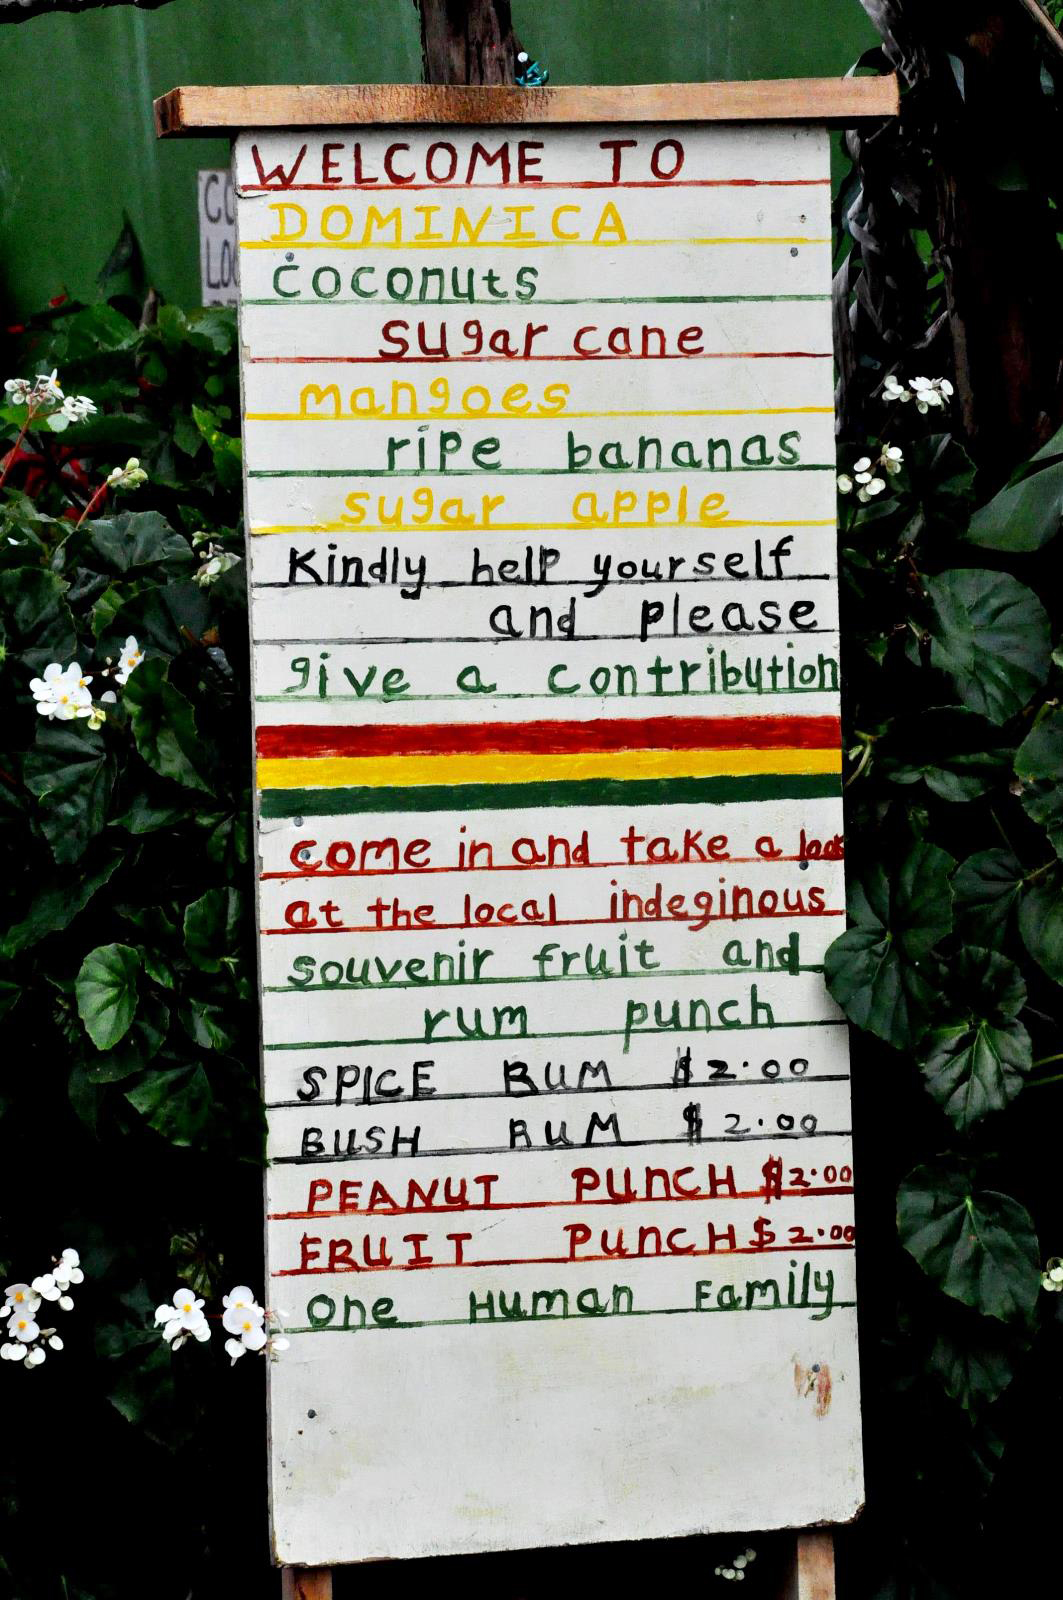 WELCOME TO
DOMINICA
coconuts
sugar cane
mangoes
ripe bananas
sugar apple
Kindly help yourself
and please
give a contribution
come in and take a look
at the local indeginous
souvenir fruit and
rum punch
SPICE RUM $2.00
BUSH RUM $2.00
PEANUT PUnCH $2.00
FRUIT PunCH $2.00
One Human Family